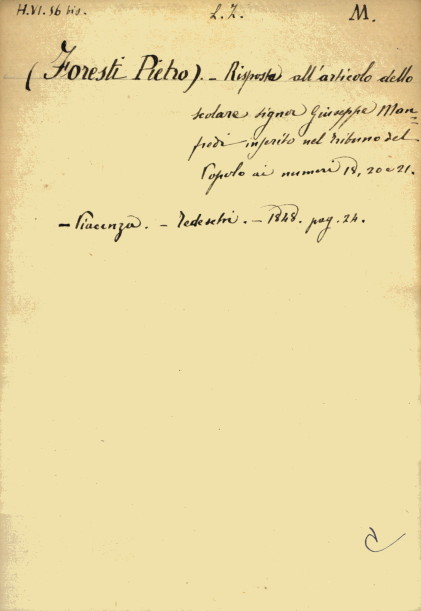 H.VI.56 bis. L. Z. M.
(Foresti Pietro). - Risposta all'articolo dello
scolare signor Giuseppe Man=
fredi inserito nel tribuno del
Popolo ai numeri 18, 20 e 21.
- Piacenza. - Tedeschi. - 1848. pag. 24.